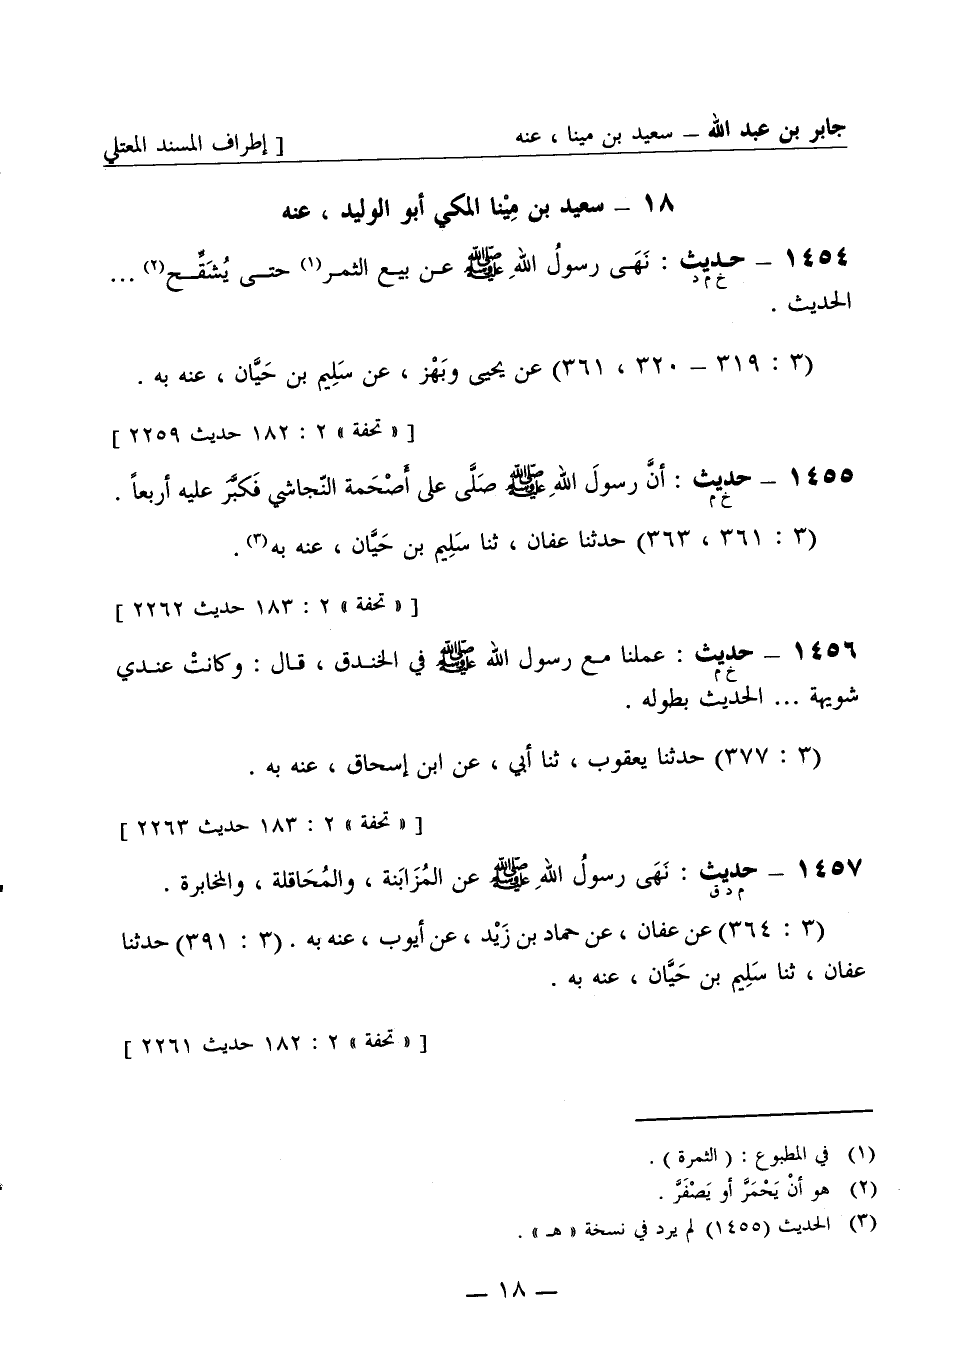 جابر بن عبد الله – سعيد بن مينا ، عنه [ إطراف المسند المعتلي
١٨ – سعيد بن مِيْنا المكي أبو الوليد ، عنه
١٤٥٤ – حديث : نَهَى رسولُ اللهِ ﷺ عن بيع الثمر(١) حتى يُشَقِّح(٢) ...
خ م د
الحديث .
(٣ : ٣١٩ – ٣٢٠ ، ٣٦١) عن يحيى وبَهْز ، عن سَلِيم بن حَيَّان ، عنه به .
[ « تحفة » ٢ : ١٨٢ حديث ٢٢٥٩ ]
١٤٥٥ – حديث : أنَّ رسولَ اللهِ ﷺ صَلَّى على أَصْحَمة النّجاشي فَكبَّرَ عليه أربعاً .
خ م
(٣ : ٣٦١ ، ٣٦٣) حدثنا عفان ، ثنا سَلِيم بن حَيَّان ، عنه به(٣) .
[ « تحفة » ٢ : ١٨٣ حديث ٢٢٦٢ ]
١٤٥٦ – حديث : عملنا مع رسول الله ﷺ في الخندق ، قال : وكانتْ عندي
خ م
شويهة ... الحديث بطوله .
(٣ : ٣٧٧) حدثنا يعقوب ، ثنا أبي ، عن ابن إسحاق ، عنه به .
[ « تحفة » ٢ : ١٨٣ حديث ٢٢٦٣ ]
١٤٥٧ – حديث : نَهَى رسولُ اللهِ ﷺ عن المُزَابَنة ، والمُحَاقلة ، والمخابرة .
م د ق
(٣ : ٣٦٤) عن عفان ، عن حماد بن زَيْد ، عن أيوب ، عنه به . (٣ : ٣٩١) حدثنا
عفان ، ثنا سَلِيم بن حَيَّان ، عنه به .
[ « تحفة » ٢ : ١٨٢ حديث ٢٢٦١ ]
(١) في المطبوع : ( الثمرة ) .
(٢) هو أنْ يَحْمَرَّ أو يَصْفَرَّ .
(٣) الحديث (١٤٥٥) لم يرد في نسخة « هـ » .
– ١٨ –